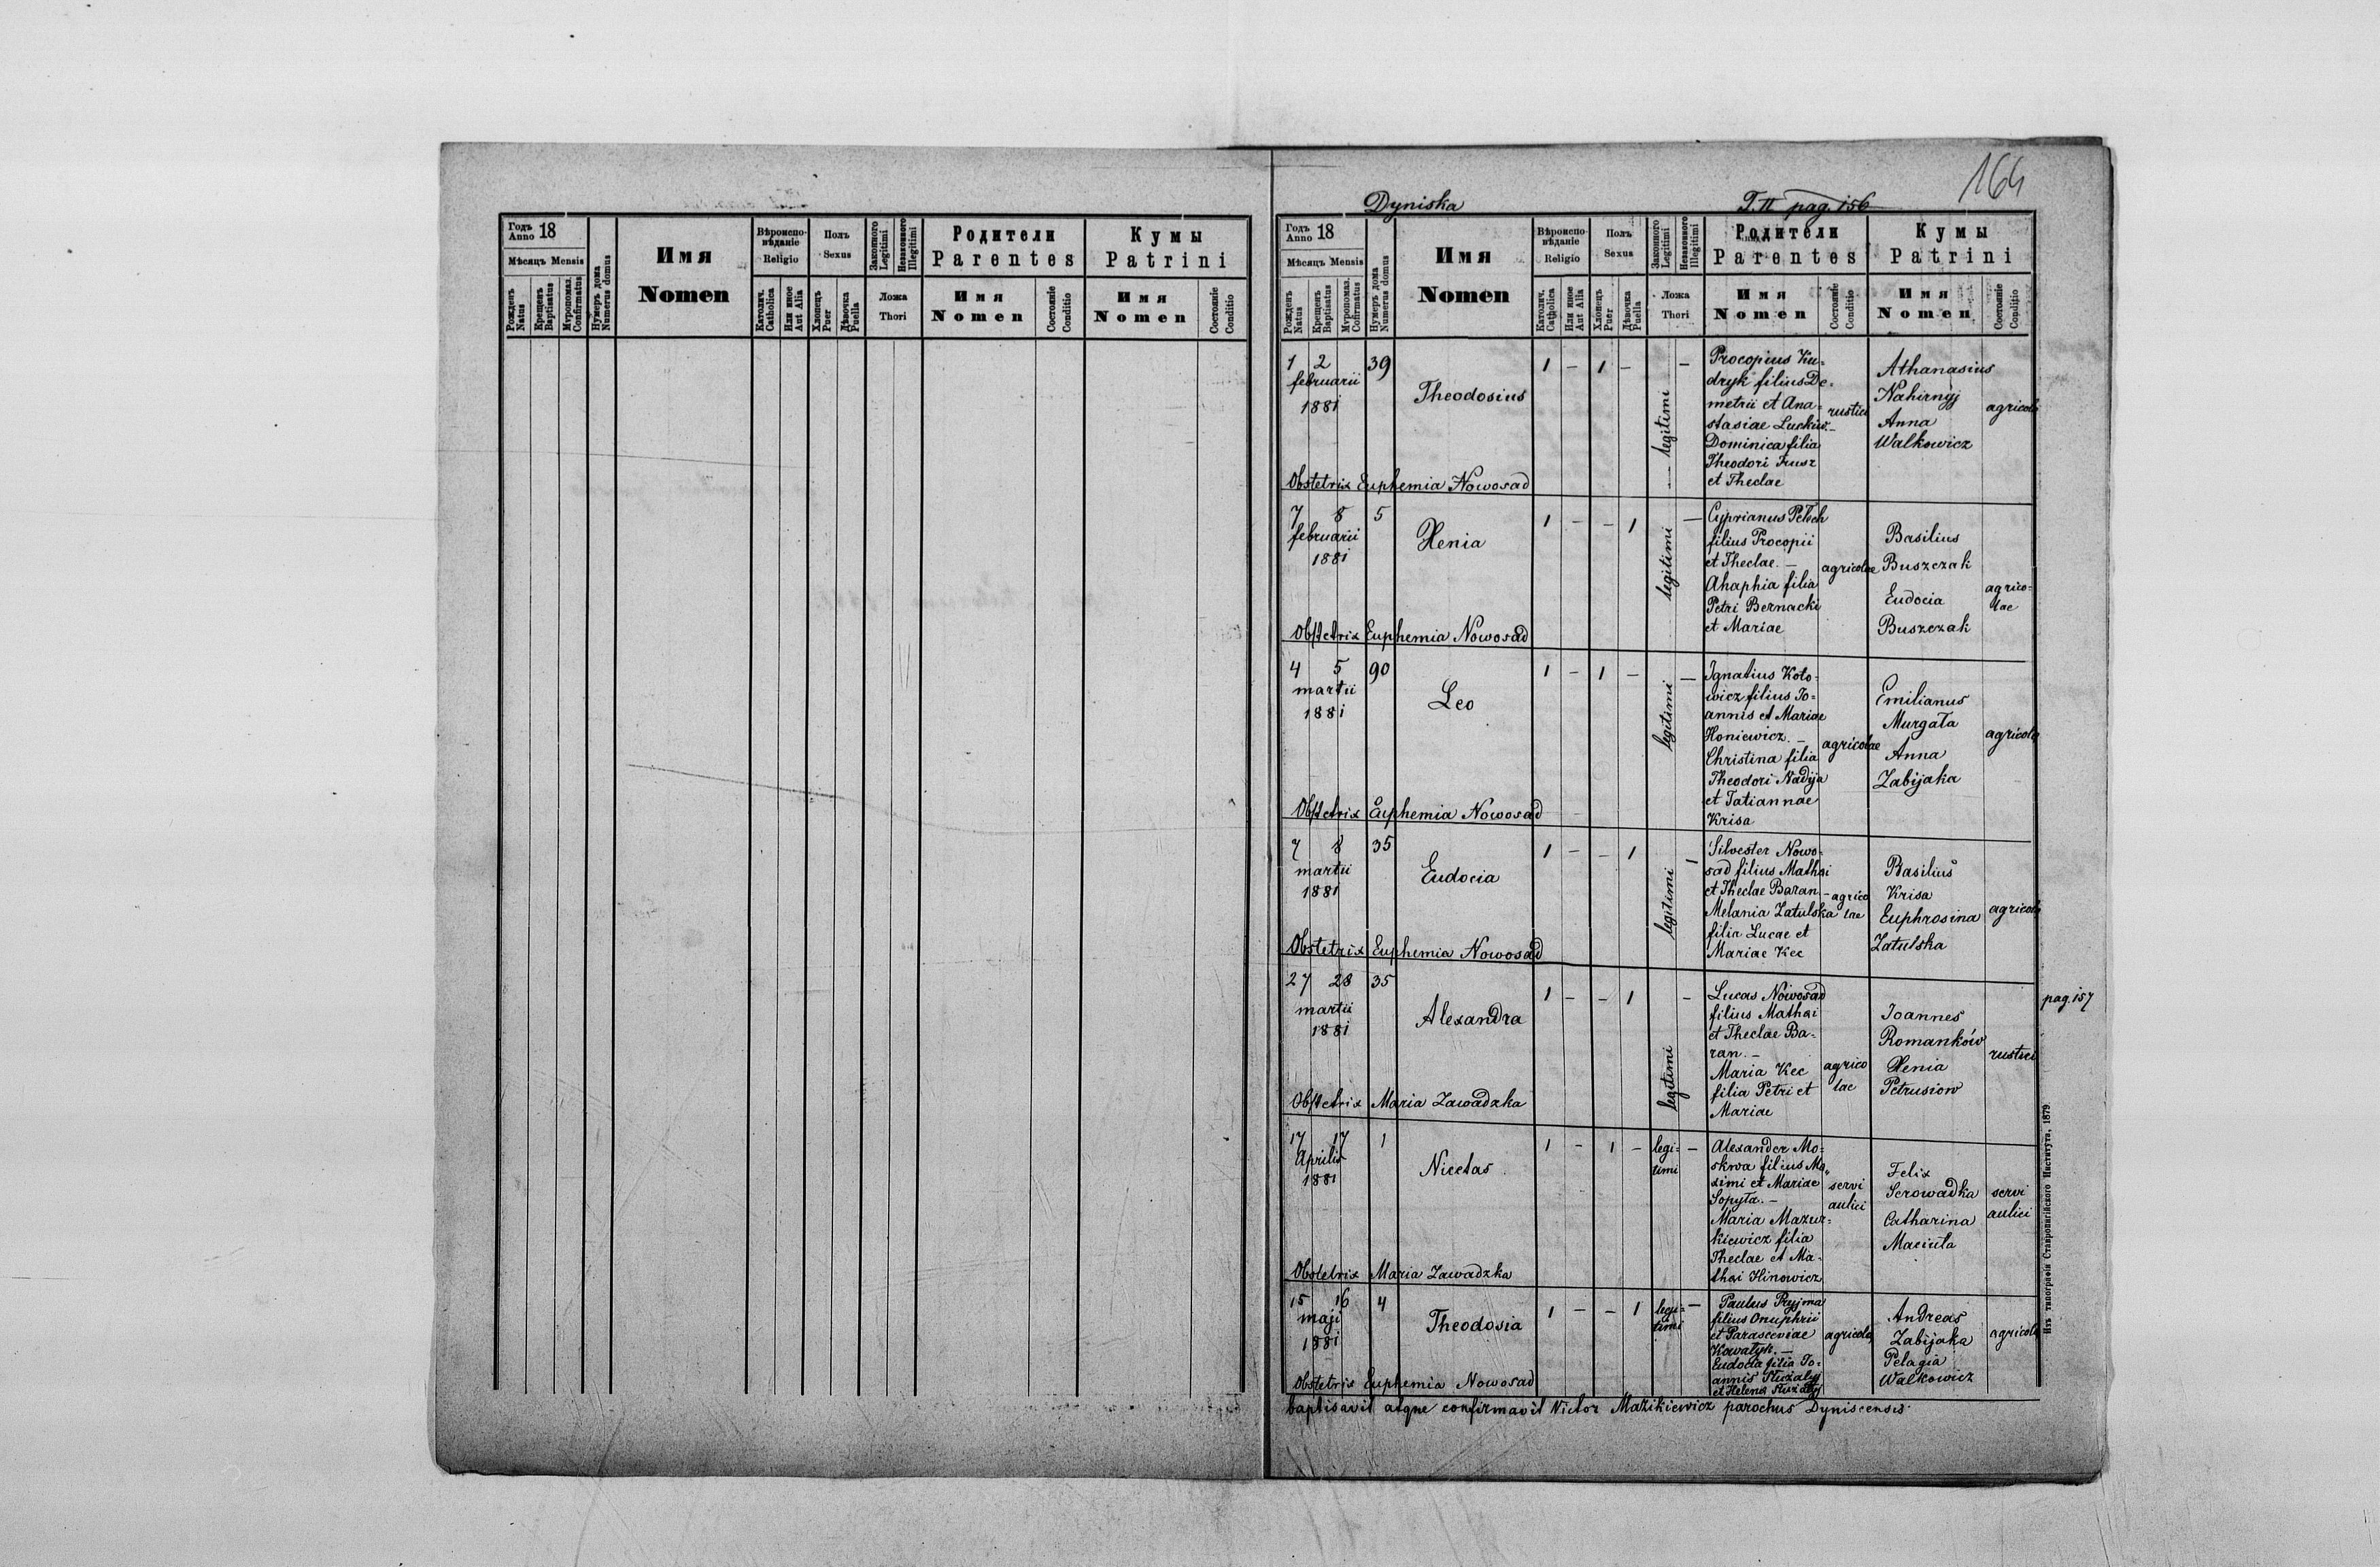 164
Dyniska T. II pag. 156
Годъ Anno 18
Мѣсяцъ Mensis
Рожденъ Natus
Крещенъ Baptisatus
Мѵропомаз. Confirmatus
Нумеръ дома Numerus domus
Имя
Nomen
Вѣроисповѣданіе
Religio
Католич. Catholica
Или иное Aut Alia
Полъ
Sexus
Хлопецъ Puer
Дѣвочка Puella
Законного Legitimi
Незаконного Illegitimi
Ложа
Thori
Родители
Parentes
Имя
Nomen
Состояніе Conditio
Кумы
Patrini
Имя
Nomen
Состояніе Conditio
Годъ Anno 18
Мѣсяцъ Mensis
Рожденъ Natus
Крещенъ Baptisatus
Мѵропомаз. Confirmatus
Нумеръ дома Numerus domus
Имя
Nomen
Вѣроисповѣданіе
Religio
Католич. Catholica
Или иное Aut Alia
Полъ
Sexus
Хлопецъ Puer
Дѣвочка Puella
Законного Legitimi
Незаконного Illegitimi
Ложа
Thori
Родители
Parentes
Имя
Nomen
Состояніе Conditio
Кумы
Patrini
Имя
Nomen
Состояніе Conditio
1 2 39
februarii
1881
Theodosius
1 - 1 - -
legitimi
Procopius Ku-
dryk filius De-
metrii et Ana-
stasiae Luckiw. -
Dominica filia
Theodori Frusz
et Theclae
rustici
Athanasius
Nahirnyj
Anna
Walkowicz
agricolae
Obstetrix Euphemia Nowosad
7 8 5
februarii
1881
Xenia
1 - - 1 -
legitimi
Cyprianus Pełech
filius Procopii
et Theclae. -
Ahaphia filia
Petri Bernacki
et Mariae
agricolae
Basilius
Buszczak
Eudocia
Buszczak
agrico-
lae
Obstetrix Euphemia Nowosad
4 5 90
martii
1881
Leo
1 - 1 - -
legitimi
Ignatius Koto-
wicz filius Jo-
annis et Mariae
Honiewicz. -
Christina filia
Theodori Nadija
et Tatiannae
Krisa
agricolae
Emilianus
Murgała
Anna
Zabijaka
agricolae
Obstetrix Euphemia Nowosad
7 8 35
martii
1881
Eudocia
1 - - 1 1
legitimi
Silvester Nowo-
sad filius Mathei
et Theclae Baran -
Melania Zatulska
filia Lucae et
Mariae Kec
agrico
lae
Basilius
Krisa
Euphrosina
Zatulska
agricolae
Obstetrix Euphemia Nowosad
27 28 35
martii
1881
Alexandra
1 - - 1 -
legitimi
Lucas Nowosad
filius Mathei
et Theclae Ba-
ran. -
Maria Kec
filia Petri et
Mariae
agrico
lae
Joannes
Romanków
Xenia
Petrusiow
rustici
pag. 157
Obstetrix Maria Zawadzka
17 17 1
Aprilis
1881
Nicetas
1 - 1 - -
legi-
timi
Alexander Mo-
skwa filius Ma-
ximi et Mariae
Sopyła. -
Maria Mazur-
kiewicz filia
Theclae et Ma-
thei Hinowicz
servi
aulici
Felix
Serowadka
Catharina
Maciuła
servi
aulici
Obstetrix Maria Zawadzka
15 16 4
maji
1881
Theodosia
1 - - 1 -
legi-
timi
Paulus Pryjma
filius Onuphrii
et Parasceviae
Kowalyk. -
Eudocia filia Jo-
annis
et Helena
agricolae
Andreas
Zabijaka
Pelagia
Walkowicz
agricolae
Obstetrix Euphemia Nowosad
baptisavit atque confirmavit Victor Mazikiewicz parochus Dyniscensis
Изъ типографіи Ставропигійского Института, 1879